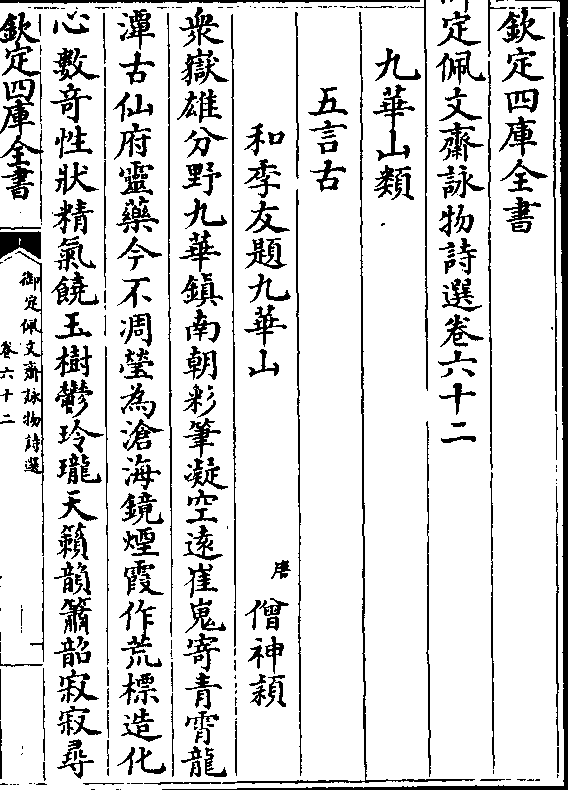 欽定四庫全書
御定佩文齋詠物詩選卷六十二
九華山類
五言古
和李友題九華山
唐 僧神穎
衆嶽雄分野九華鎮南朝彩筆凝空遠崔嵬寄青霄龍
潭古仙府靈藥今不凋瑩為滄海鏡煙霞作荒標造化
心數奇性狀精氣饒玉樹鬱玲瓏天籟韻簫韶寂寂尋
欽定四庫全書
御定佩文齋詠物詩選
卷六十二